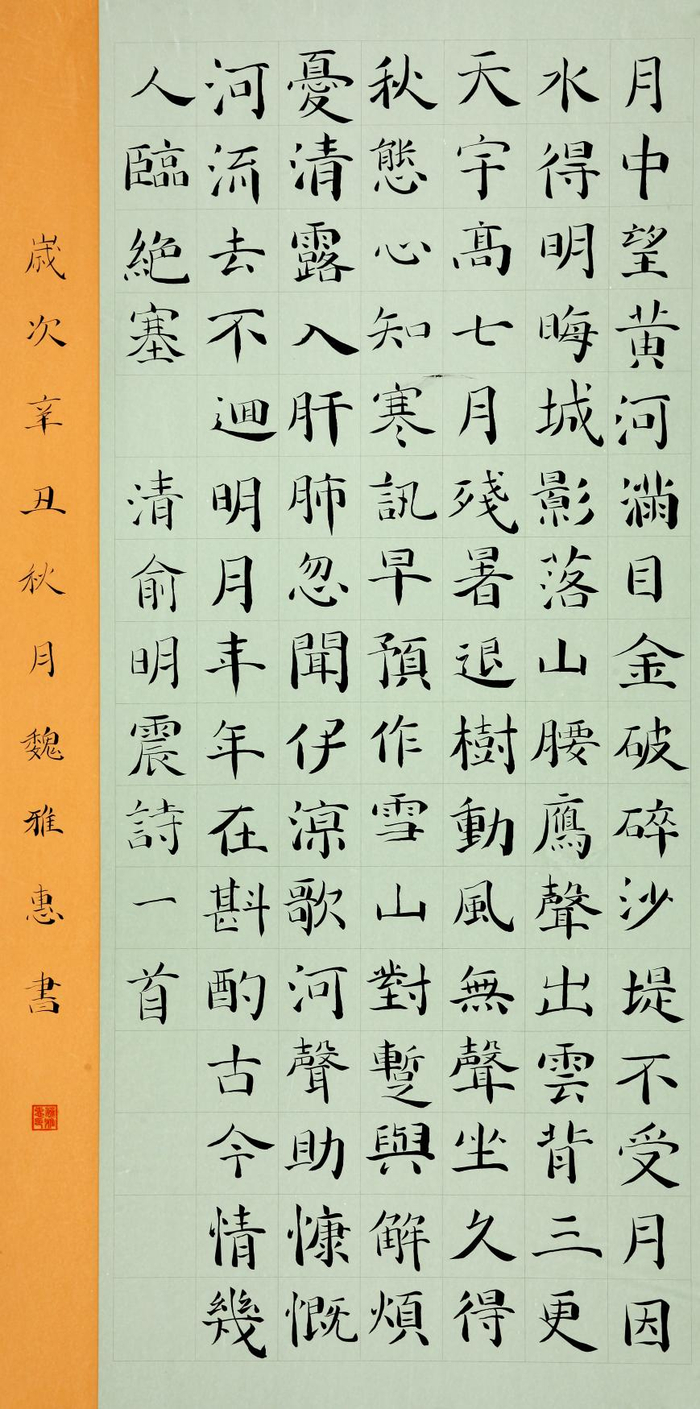 月中望黄河滿目金破碎沙堤不受月因
水得明晦城影落山腰鴈聲出雲背三更
天宇髙七月殘暑退樹動風無聲坐久得
秋態心知寒訊早預作雪山對蹔與解煩
憂清露入肝肺忽聞伊涼歌河聲助慷慨
河流去不迴明月年年在斟酌古今情幾
人臨絕塞 清俞明震詩一首
歲次辛丑秋月魏雅惠書